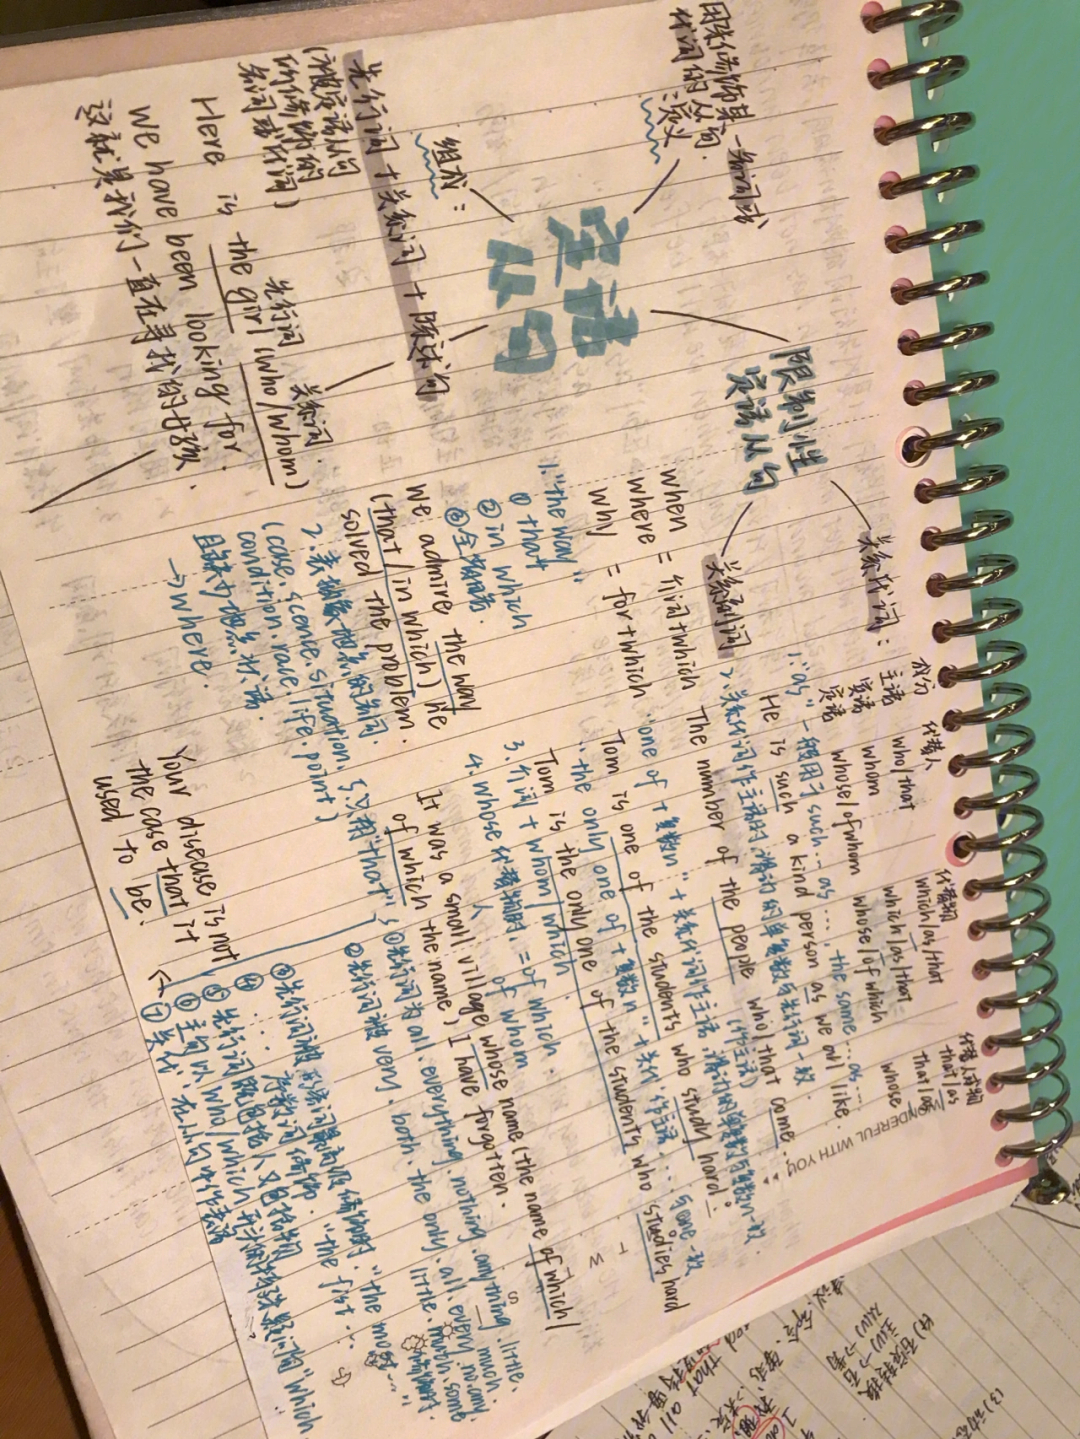 定语
从句
用来修饰某一名词或
代词的从句.
定义
组成:
先行词 + 关系词 + 陈述句
(被定语从句
所修饰的
名词或代词)
先行词
关系词
Here is the girl (who/whom)
we have been looking for.
这就是我们一直在寻找的女孩.
限制性
定语从句
关系代词:
成分 代替人 代替物 代替人或物
主语 who/that which/as/that that/as
宾语 whom which/as/that that/as
定语 whose/of whom whose/of which whose
1. "as" 一般用于 such … as …, the same … as …
He is such a kind person as we all like.
2. 关系代词作主语时, 谓动的单复数与先行词一致.
The number of the people who/that come.
(作主语)
"one of + 复数n" + 关系代词作主语, 谓动的单复数与复数n一致.
Tom is one of the students who study hard.
"the only one of + 复数n" + 关代.作主语 … 与one一致
Tom is the only one of the students who studies hard
3. 介词 + whom/which.
4. whose 代替物时, = of which.
人 of whom
It was a small village whose name (the name of which/
of which the name) I have forgotten.
关系副词
when
where = 介词+which
why = for+which
1. "the way"
① that
② in which
③ 全省略.
We admire the way
(that/in which) he
solved the problem.
2. 表抽象地点的名词.
(case. scene. situation.
condition. race. life. point)
且缺少地点状语.
→ where.
5. 只用"that"
① 先行词为all. everything. nothing. anything. little. much
② 先行词被very. both. the only. all. every. no. any. little. much. some 修饰时.
③ 先行词被形容词最高级修饰时. "the most …"
④ … 序数词修饰. "the fist …"
⑤ 先行词既包括人又包括物
⑥ 主句以who/which开头的特殊疑问句 "which
⑦ 关代. 在从句中作表语
Your disease is not
the case that it
used to be.
WONDERFUL WITH YOU
T W
S